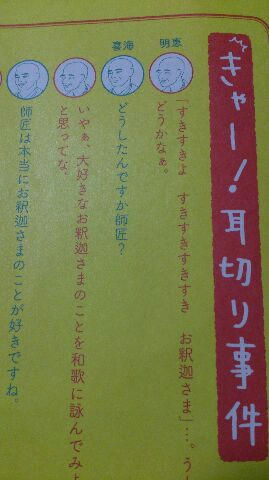 きゃー！耳切り事件
明恵
「すきすきよ　すきすきすきすき　お釈迦さま」…。う
どうかなぁ。
喜海
どうしたんですか師匠？
いやぁ、大好きなお釈迦さまのことを和歌に詠んでみ
と思ってな。
師匠は本当にお釈迦さまのことが好きですね。